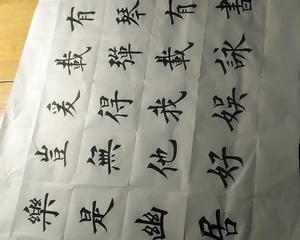 有琴有書
載彈載詠
爰得我娛
豈無他好
樂是幽居